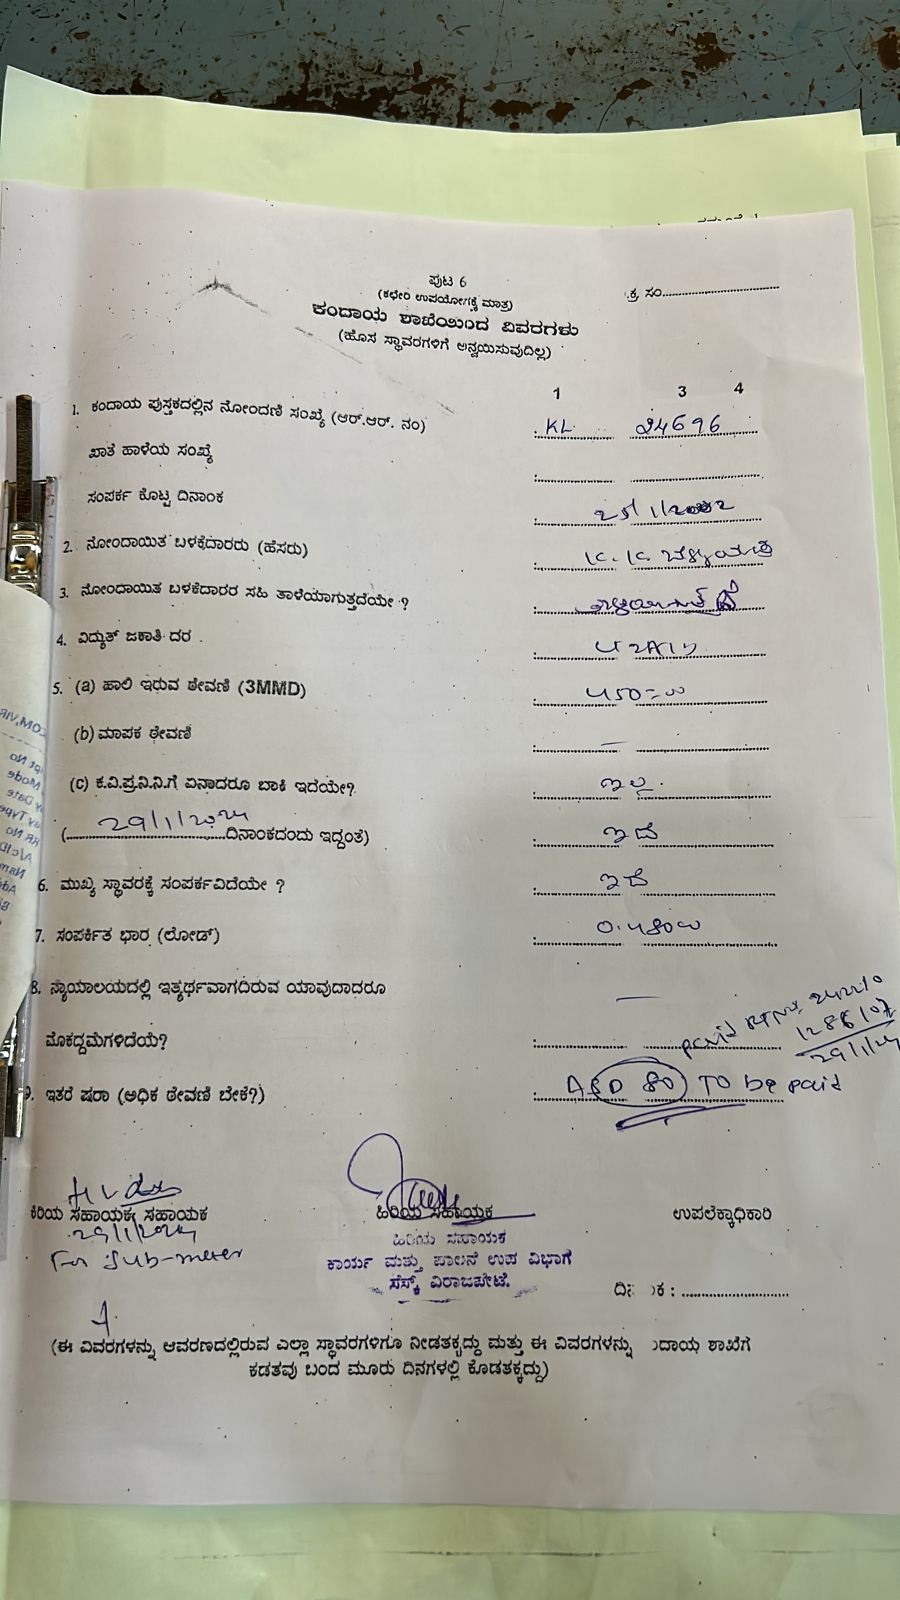 ಪುಟ 6
(ಕಛೇರಿ ಉಪಯೋಗಕ್ಕೆ ಮಾತ್ರ)
ಕ್ರ ಸಂ..............................
ಕಂದಾಯ ಶಾಖೆಯಿಂದ ವಿವರಗಳು
(ಹೊಸ ಸ್ಥಾವರಗಳಿಗೆ ಅನ್ವಯಿಸುವುದಿಲ್ಲ)
1 3 4
1. ಕಂದಾಯ ಪುಸ್ತಕದಲ್ಲಿನ ನೋಂದಣಿ ಸಂಖ್ಯೆ (ಆರ್.ಆರ್. ನಂ) : KL 24696
ಖಾತೆ ಹಾಳೆಯ ಸಂಖ್ಯೆ :
ಸಂಪರ್ಕ ಕೊಟ್ಟ ದಿನಾಂಕ : 25/1/2002
2. ನೋಂದಾಯಿತ ಬಳಕೆದಾರರು (ಹೆಸರು) : K. K.
3. ನೋಂದಾಯಿತ ಬಳಕೆದಾರರ ಸಹಿ ತಾಳೆಯಾಗುತ್ತದೆಯೇ ? :
4. ವಿದ್ಯುತ್ ಜಕಾತಿ ದರ . :
5. (a) ಹಾಲಿ ಇರುವ ಠೇವಣಿ (3MMD) : 450=00
(b) ಮಾಪಕ ಠೇವಣಿ : —
(c) ಕ.ವಿ.ಪ್ರ.ನಿ.ನಿ.ಗೆ ಏನಾದರೂ ಬಾಕಿ ಇದೆಯೇ? : ಇಲ್ಲ.
(29/1/2024 ದಿನಾಂಕದಂದು ಇದ್ದಂತೆ) : ಇದೆ
6. ಮುಖ್ಯ ಸ್ಥಾವರಕ್ಕೆ ಸಂಪರ್ಕವಿದೆಯೇ ? : ಇದೆ
7. ಸಂಪರ್ಕಿತ ಭಾರ (ಲೋಡ್) :
8. ನ್ಯಾಯಾಲಯದಲ್ಲಿ ಇತ್ಯರ್ಥವಾಗದಿರುವ ಯಾವುದಾದರೂ —
ಮೊಕದ್ದಮೆಗಳಿದೆಯೆ? :
paid
29/1/24
9. ಇತರೆ ಷರಾ (ಅಧಿಕ ಠೇವಣಿ ಬೇಕೆ?) : ASD 80 TO be paid
ಕಿರಿಯ ಸಹಾಯಕ/ ಸಹಾಯಕ
ಹಿರಿಯ ಸಹಾಯಕ
ಉಪಲೆಕ್ಕಾಧಿಕಾರಿ
29/1/2024
For Sub-meter
ಹಿರಿಯ ಸಹಾಯಕ
ಕಾರ್ಯ ಮತ್ತು ಪಾಲನೆ ಉಪ ವಿಭಾಗ
ಸೆಸ್ಕ್ ವಿರಾಜಪೇಟೆ.
(ಈ ವಿವರಗಳನ್ನು ಆವರಣದಲ್ಲಿರುವ ಎಲ್ಲಾ ಸ್ಥಾವರಗಳಿಗೂ ನೀಡತಕ್ಕದ್ದು ಮತ್ತು ಈ ವಿವರಗಳನ್ನು ದಾಯ ಶಾಖೆಗೆ
ಕಡತವು ಬಂದ ಮೂರು ದಿನಗಳಲ್ಲಿ ಕೊಡತಕ್ಕದ್ದು)